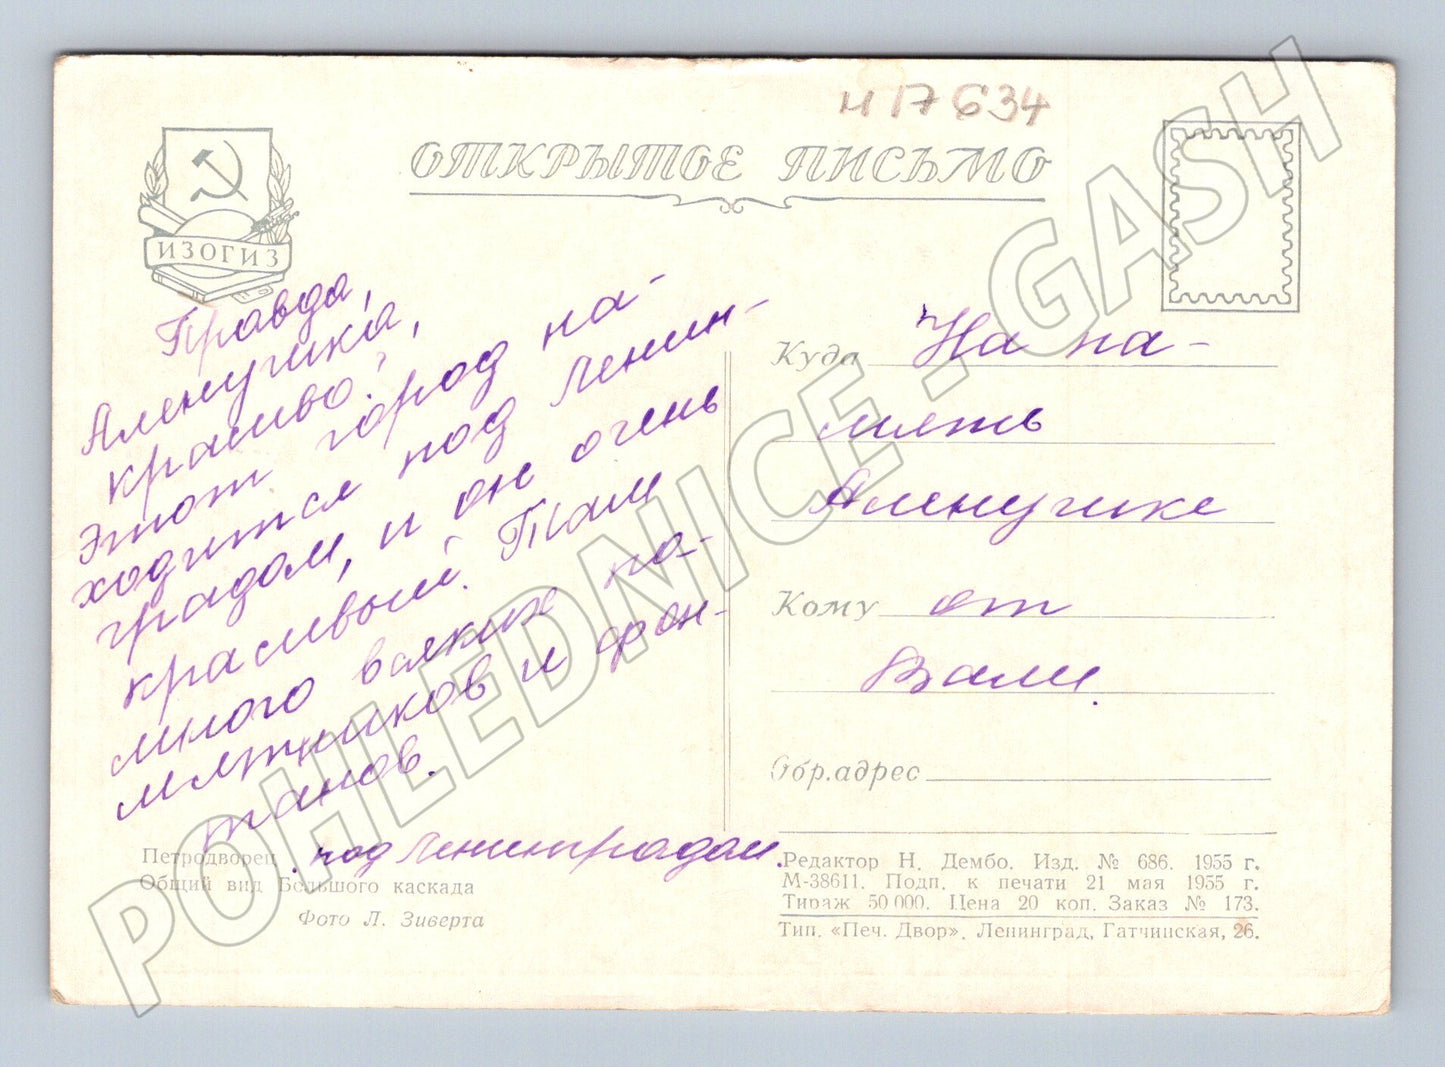 И 17634
ОТКРЫТОЕ ПИСЬМО
ИЗОГИЗ
Правда,
Аленушка,
красиво?
Этот город на-
ходится под Ленин-
градом, и он очень
красивый. Там
много всяких па-
мятников и фон-
танов.
Петродворец . под Ленинградом.
Общий вид Большого каскада
Фото Л. Зиверта
Куда На па-
мять
Аленушке
Кому от
Вали.
Обр. адрес
Редактор Н. Дембо. Изд. № 686. 1955 г.
М-38611. Подп. к печати 21 мая 1955 г.
Тираж 50 000. Цена 20 коп. Заказ № 173.
Тип. «Печ. Двор». Ленинград, Гатчинская, 26.
POHLEDNICE - GASH